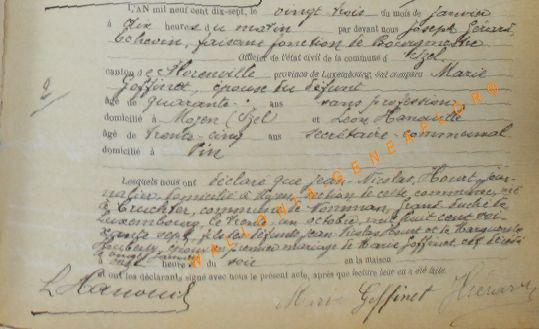 L'AN mil neuf cent dix-sept, le vingt trois du mois de janvier
à dix heures du matin par devant nous Joseph Gérard
Echevin, faisant fonction de Bourgmestre
Officier de l'état civil de la commune d'Izel
canton de Florenville province de Luxembourg; ont comparu Marie
Goffinet, épouse du défunt
âgé de quarante ans sans profession
domicilié à Moyen (Izel) et Léon Hanouille
âgé de trente-cinq ans secrétaire communal
domicilié à Pin
2
Lesquels nous ont déclaré que Jean-Nicolas Houst, jour-
nalier, domicilié à Moyen, section de cette commune, né
à Cruchten, commune de Nommern, Grand duché de
Luxembourg, le trente-un octobre, mil huit cent soi-
xante sept, fils de défunts Jean Nicolas Houst et de Marguerite
époux en premier mariage de Marie Goffinet, est décédé
onze heures du soir en la maison
et ont les déclarants signé avec nous le présent acte, après que lecture leur en a été faite.
L. Hanouille
Marie Goffinet
WALLONIA GENEAL.ORG